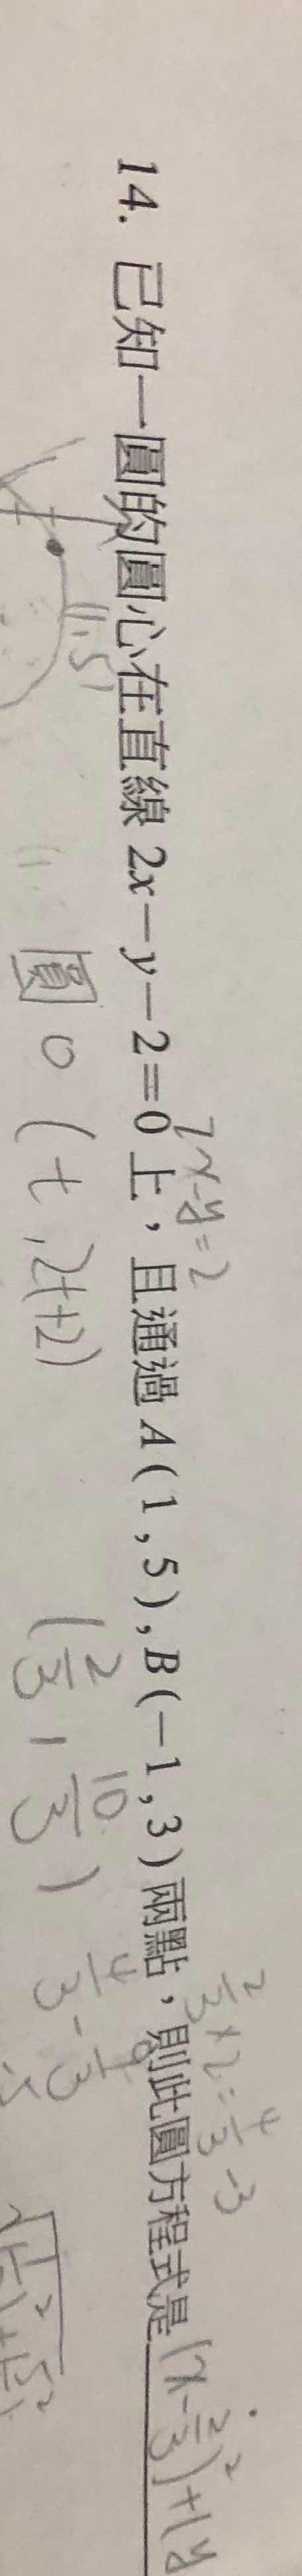 14. 已知一圓的圓心在直線 2x－y－2=0 上，且通過 A(1,5), B(－1,3) 兩點，則此圓方程式是
2x-y=2
2/3×2=4/3-3
(x-2/3)²+(y
(1,5)
圓 O (t, 2t+2)
(2/3, 10/3)